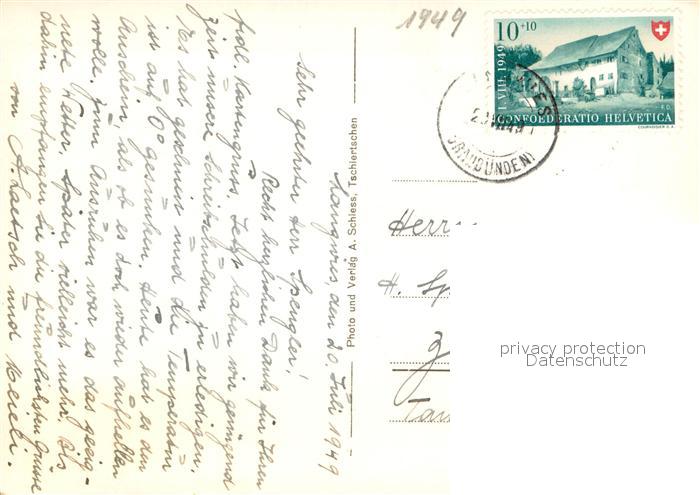 1949
10+10
I. VIII. 1949
CONFOEDERATIO HELVETICA
F.D.
COURVOISIER S.A.
(GRAUBÜNDEN)
Langwies, den 20. Juli 1949
Sehr geehrter Herr Spengler!
Recht herzlichen Dank für Ihren
frdl. Kartengruss. Jetzt haben wir genügend
Zeit unsere Schreibschulden zu erledigen.
Es hat geschneit und die Temperatur
ist auf 6° gesunken. Heute hat es den
Anschein, als ob es doch wieder aufhellen
wolle. Zum Ausruhen war es das geeig-
nete Wetter. Später vielleicht mehr. Bis
dahin empfangen Sie die freundlichsten Grüsse
von und
Photo und Verlag A. Schiess, Tschiertschen
Herr
H. Sp
Z
privacy protection
Datenschutz